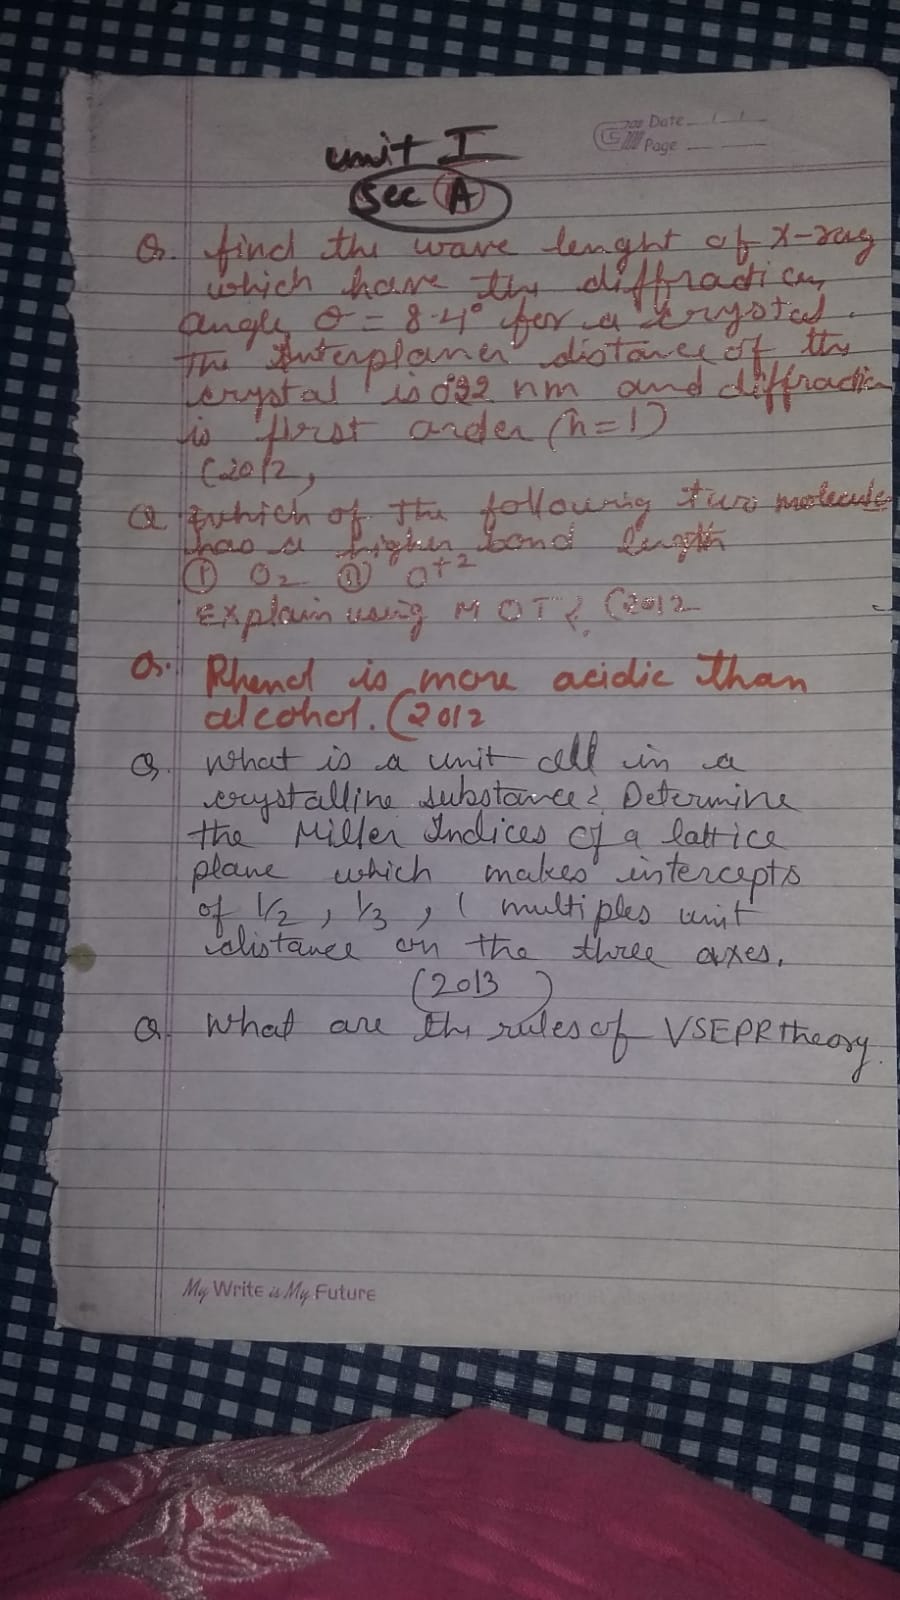 Date
Page
unit I
Sec A
Q. find the wave lenght of x-ray
which have the diffraction
angle θ = 8.4° for a crystal.
The Interplaner distance of the
crystal is 0.32 nm and diffraction
is first order (n=1)
(2012,
Q which of the following two molecule
has a higher bond length
① O2 ② O+2
Explain using M O T ? (2012
Q. Phenol is more acidic than
alcohol. (2012
Q. What is a unit cell in a
crystalline substance? Determine
the Miller Indices of a lattice
plane which makes intercepts
of 1/2, 1/3, 1 multiples unit
distance on the three axes.
(2013 )
Q. What are the rules of VSEPR theory.
My Write is My Future